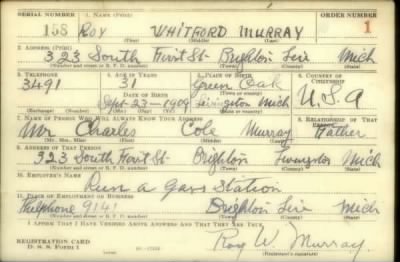 SERIAL NUMBER 1. NAME (Print) ORDER NUMBER
158 ROY WHITFORD MURRAY 1
(First) (Middle) (Last)
2. ADDRESS (Print)
323 South First St- Brighton Liv Mich
(Number and street or R. F. D. number) (Town) (County) (State)
3. TELEPHONE 4. AGE IN YEARS 5. PLACE OF BIRTH 6. COUNTRY OF CITIZENSHIP
3491 31 Green Oak
DATE OF BIRTH (Town or county)
Sept-23-1909 Livingston Mich U.S.A
(Exchange) (Number) (Mo.) (Day) (Yr.) (State or country)
7. NAME OF PERSON WHO WILL ALWAYS KNOW YOUR ADDRESS 8. RELATIONSHIP OF THAT PERSON
Mr Charles Cole Murray Father
(Mr., Mrs., Miss) (First) (Middle) (Last)
9. ADDRESS OF THAT PERSON
323 South First St- Brighton Livingston Mich
(Number and street or R. F. D. number) (Town) (County) (State)
10. EMPLOYER'S NAME
Run a Gas Station
11. PLACE OF EMPLOYMENT OR BUSINESS
Telephone 9141 Brighton Liv Mich
(Number and street or R. F. D. number) (Town) (County) (State)
I AFFIRM THAT I HAVE VERIFIED ABOVE ANSWERS AND THAT THEY ARE TRUE.
REGISTRATION CARD
D. S. S. FORM 1 Roy W. Murray
(Registrant's signature)